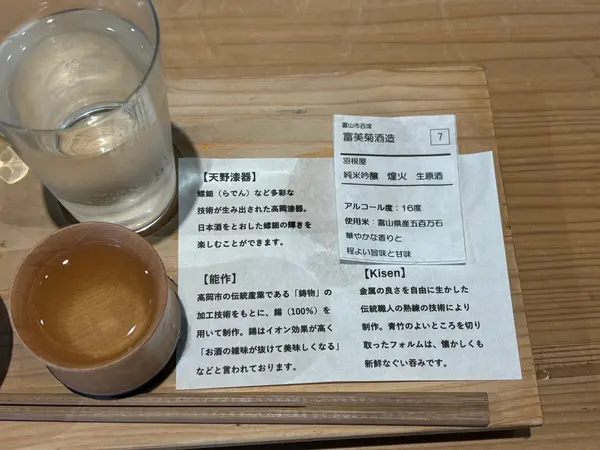 富山市百塚
富美菊酒造
7
羽根屋
純米吟醸 煌火 生原酒
アルコール度:16度
使用米:富山県産五百万石
華やかな香りと
程よい旨味と甘味
【天野漆器】
螺鈿(らでん)など多彩な
技術が生み出された高岡漆器。
日本酒をとおした螺鈿の輝きを
楽しむことができます。
【能作】
高岡市の伝統産業である「鋳物」の
加工技術をもとに、錫(100%)を
用いて制作。錫はイオン効果が高く
「お酒の雑味が抜けて美味しくなる」
などと言われております。
【Kisen】
金属の良さを自由に生かした
伝統職人の熟練の技術により
制作。青竹のよいところを切り
取ったフォルムは、懐かしくも
新鮮なぐい呑みです。